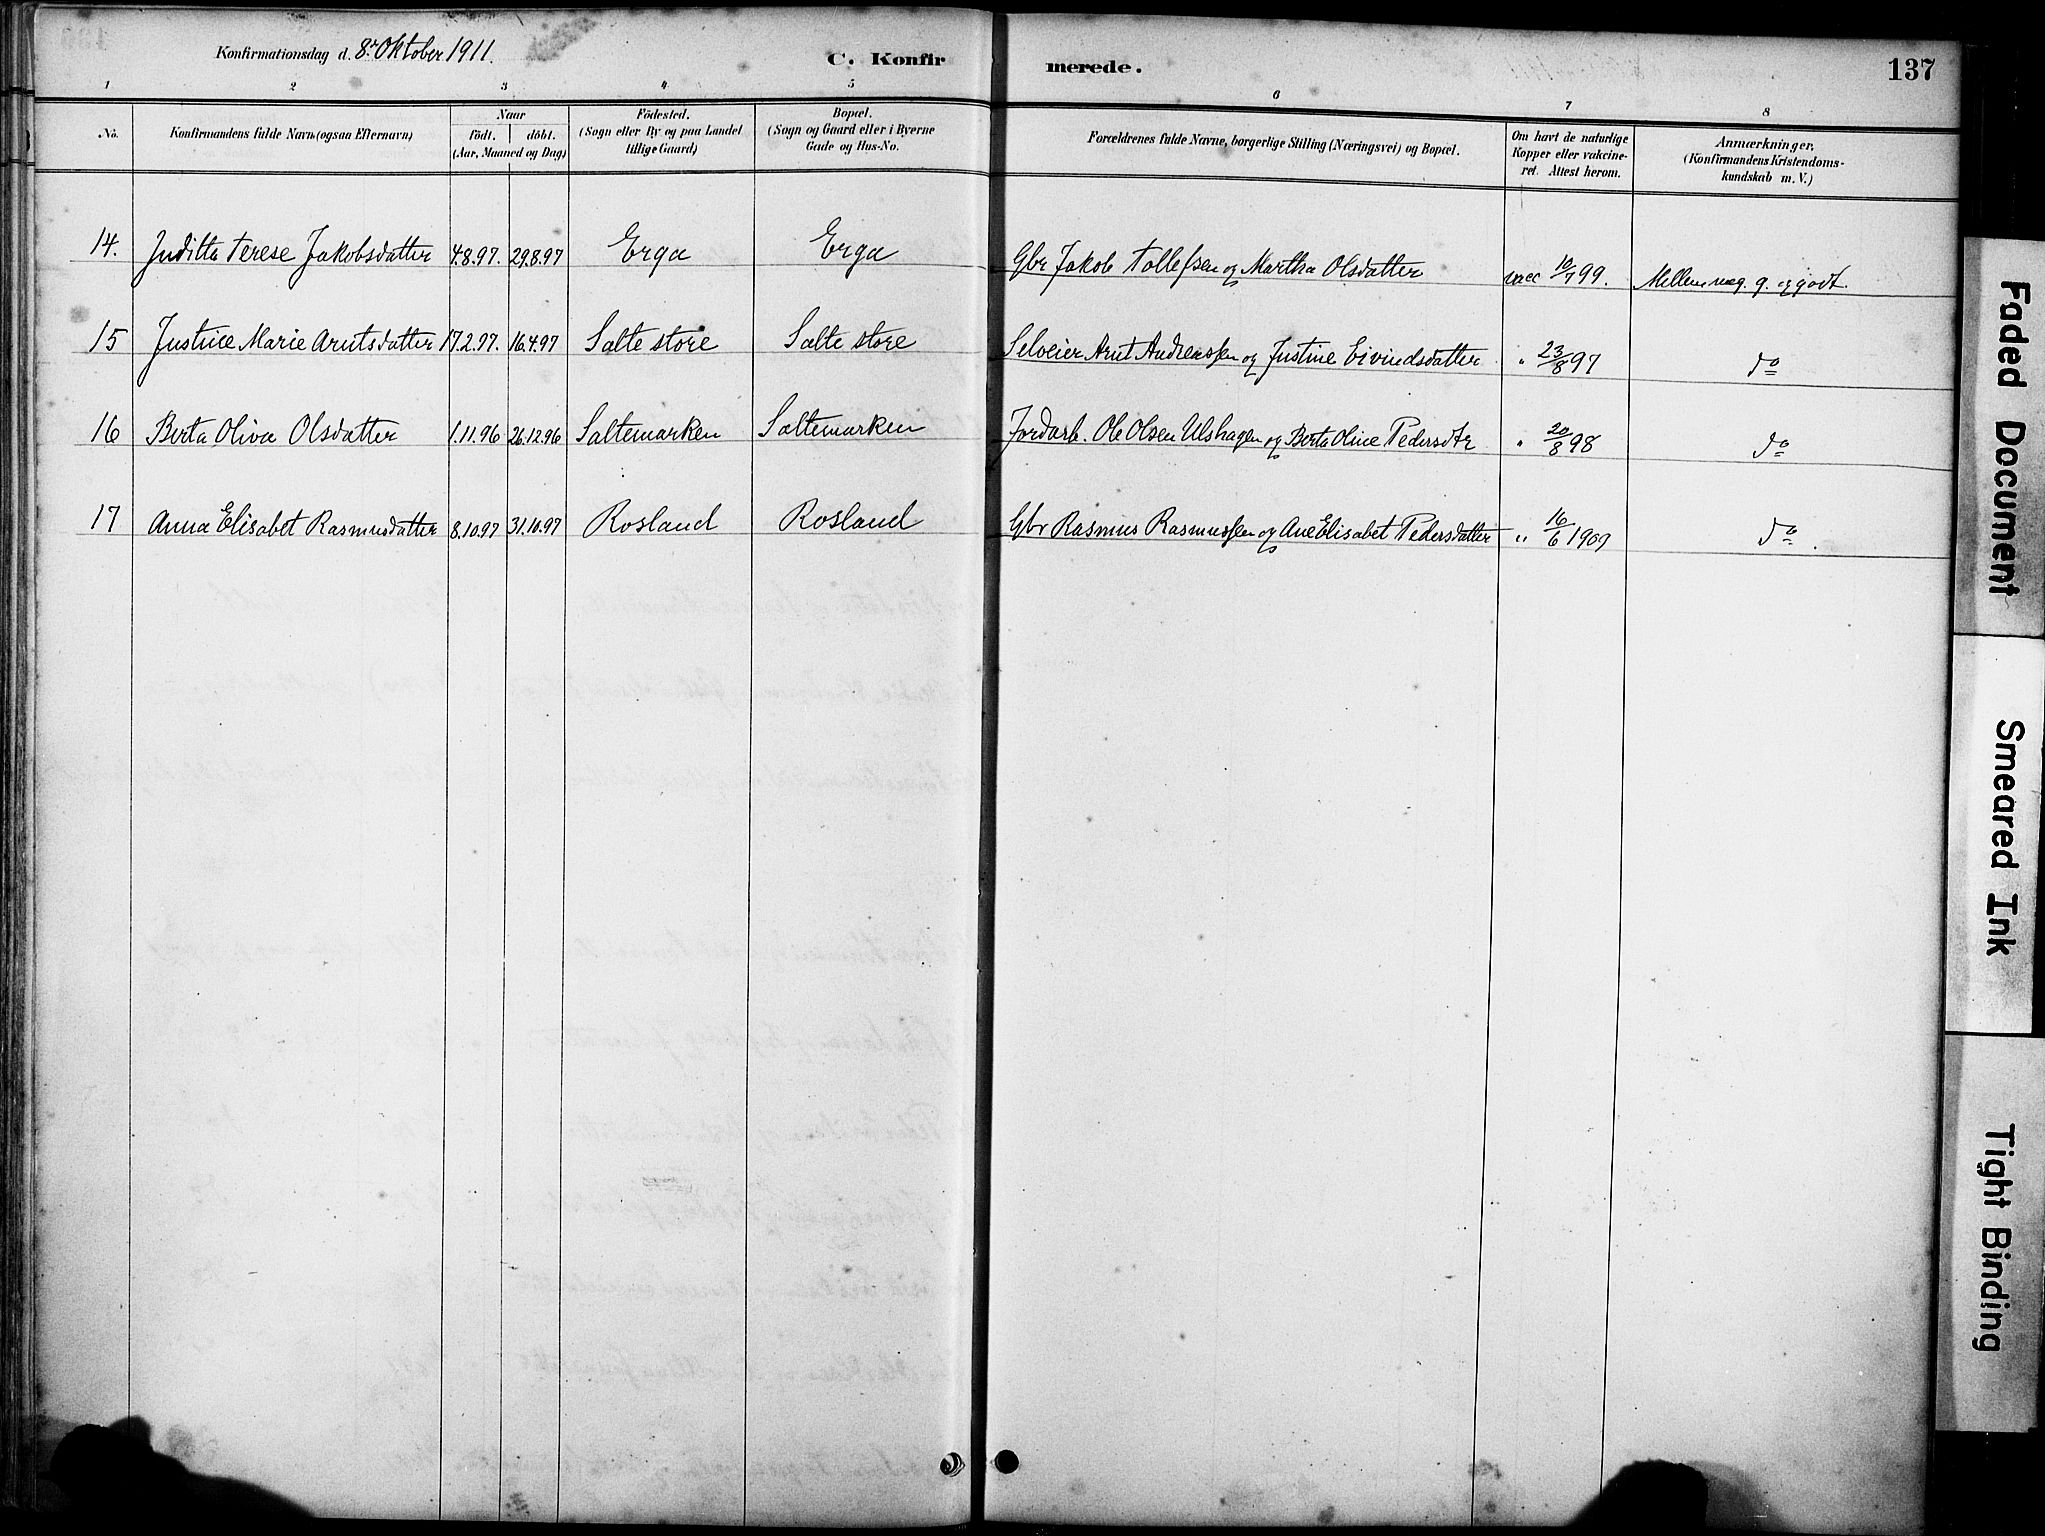 Konfirmationsdag d. 8r Oktober 1911.
C. Konfirmerede.
137
1 2 3 4 5 6 7 8
No.
Konfirmandens fulde Navn (ogsaa Efternavn)
Naar
födt. döbt.
(Aar, Maaned og Dag)
Födested.
(Sogn eller By og paa Landet
tillige Gaard)
Bopæl.
(Sogn og Gaard eller i Byerne
Gade og Hus-No.
Forældrenes fulde Navne, borgerlige Stilling (Næringsvei) og Bopæl.
Om havt de naturlige
Kopper eller vakcine-
ret. Attest herom.
Anmærkninger.
(Konfirmandens Kristendoms-
kundskab m. V.)
14. Juditta Terese Jakobsdatter 4.8.97. 29.8.97 Erga Erga Gbr Jakob Tollefsen og Martha Olsdatter vacc 10/7 99. Mellem meg. g. og godt.
15 Justine Marie Arntsdatter 17.2.97. 16.4.97 Salte store Salte store Selveier Arnt Andreassen og Justine Eivindsdatter " 23/8 97 do
16 Berta Oliva Olsdatter 1.11.96 26.12.96 Saltemarken Saltemarken Jordarb. Ole Olsen Ulshagen og Berta Oline Pedersdtr " 20/8 98 do
17 Anna Elisabet Rasmusdatter 8.10.97 31.10.97 Rosland Rosland Gbr Rasmus Rasmussen og Ane Elisabet Pedersdatter " 16/6 1909 do.
Faded Document
Smeared Ink
Tight Binding